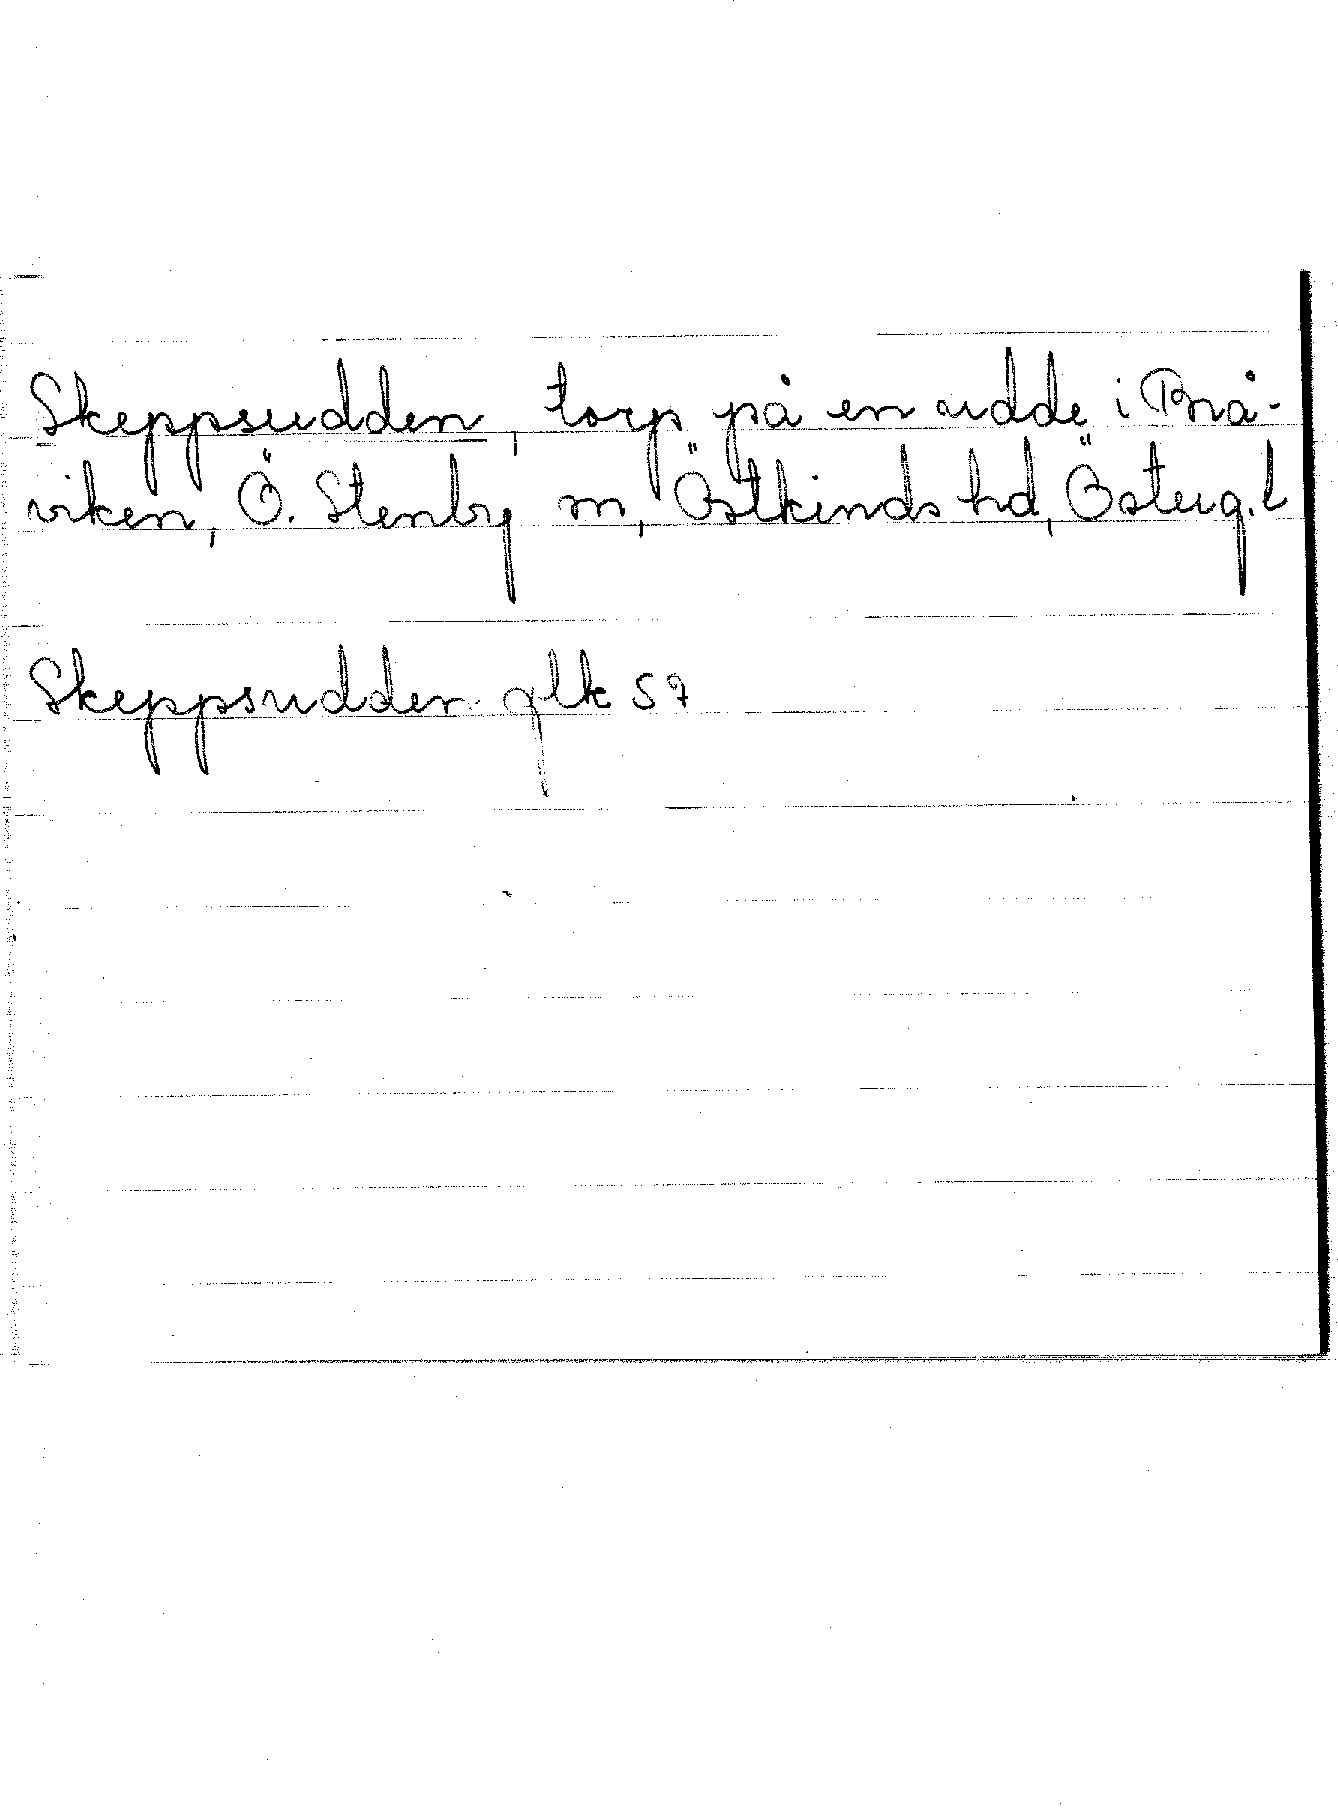 Skeppsudden, torp på en udde i Brå-
viken, Ö. Stenby sn, Östkinds hd, Östergötl
Skeppsudden glk 57